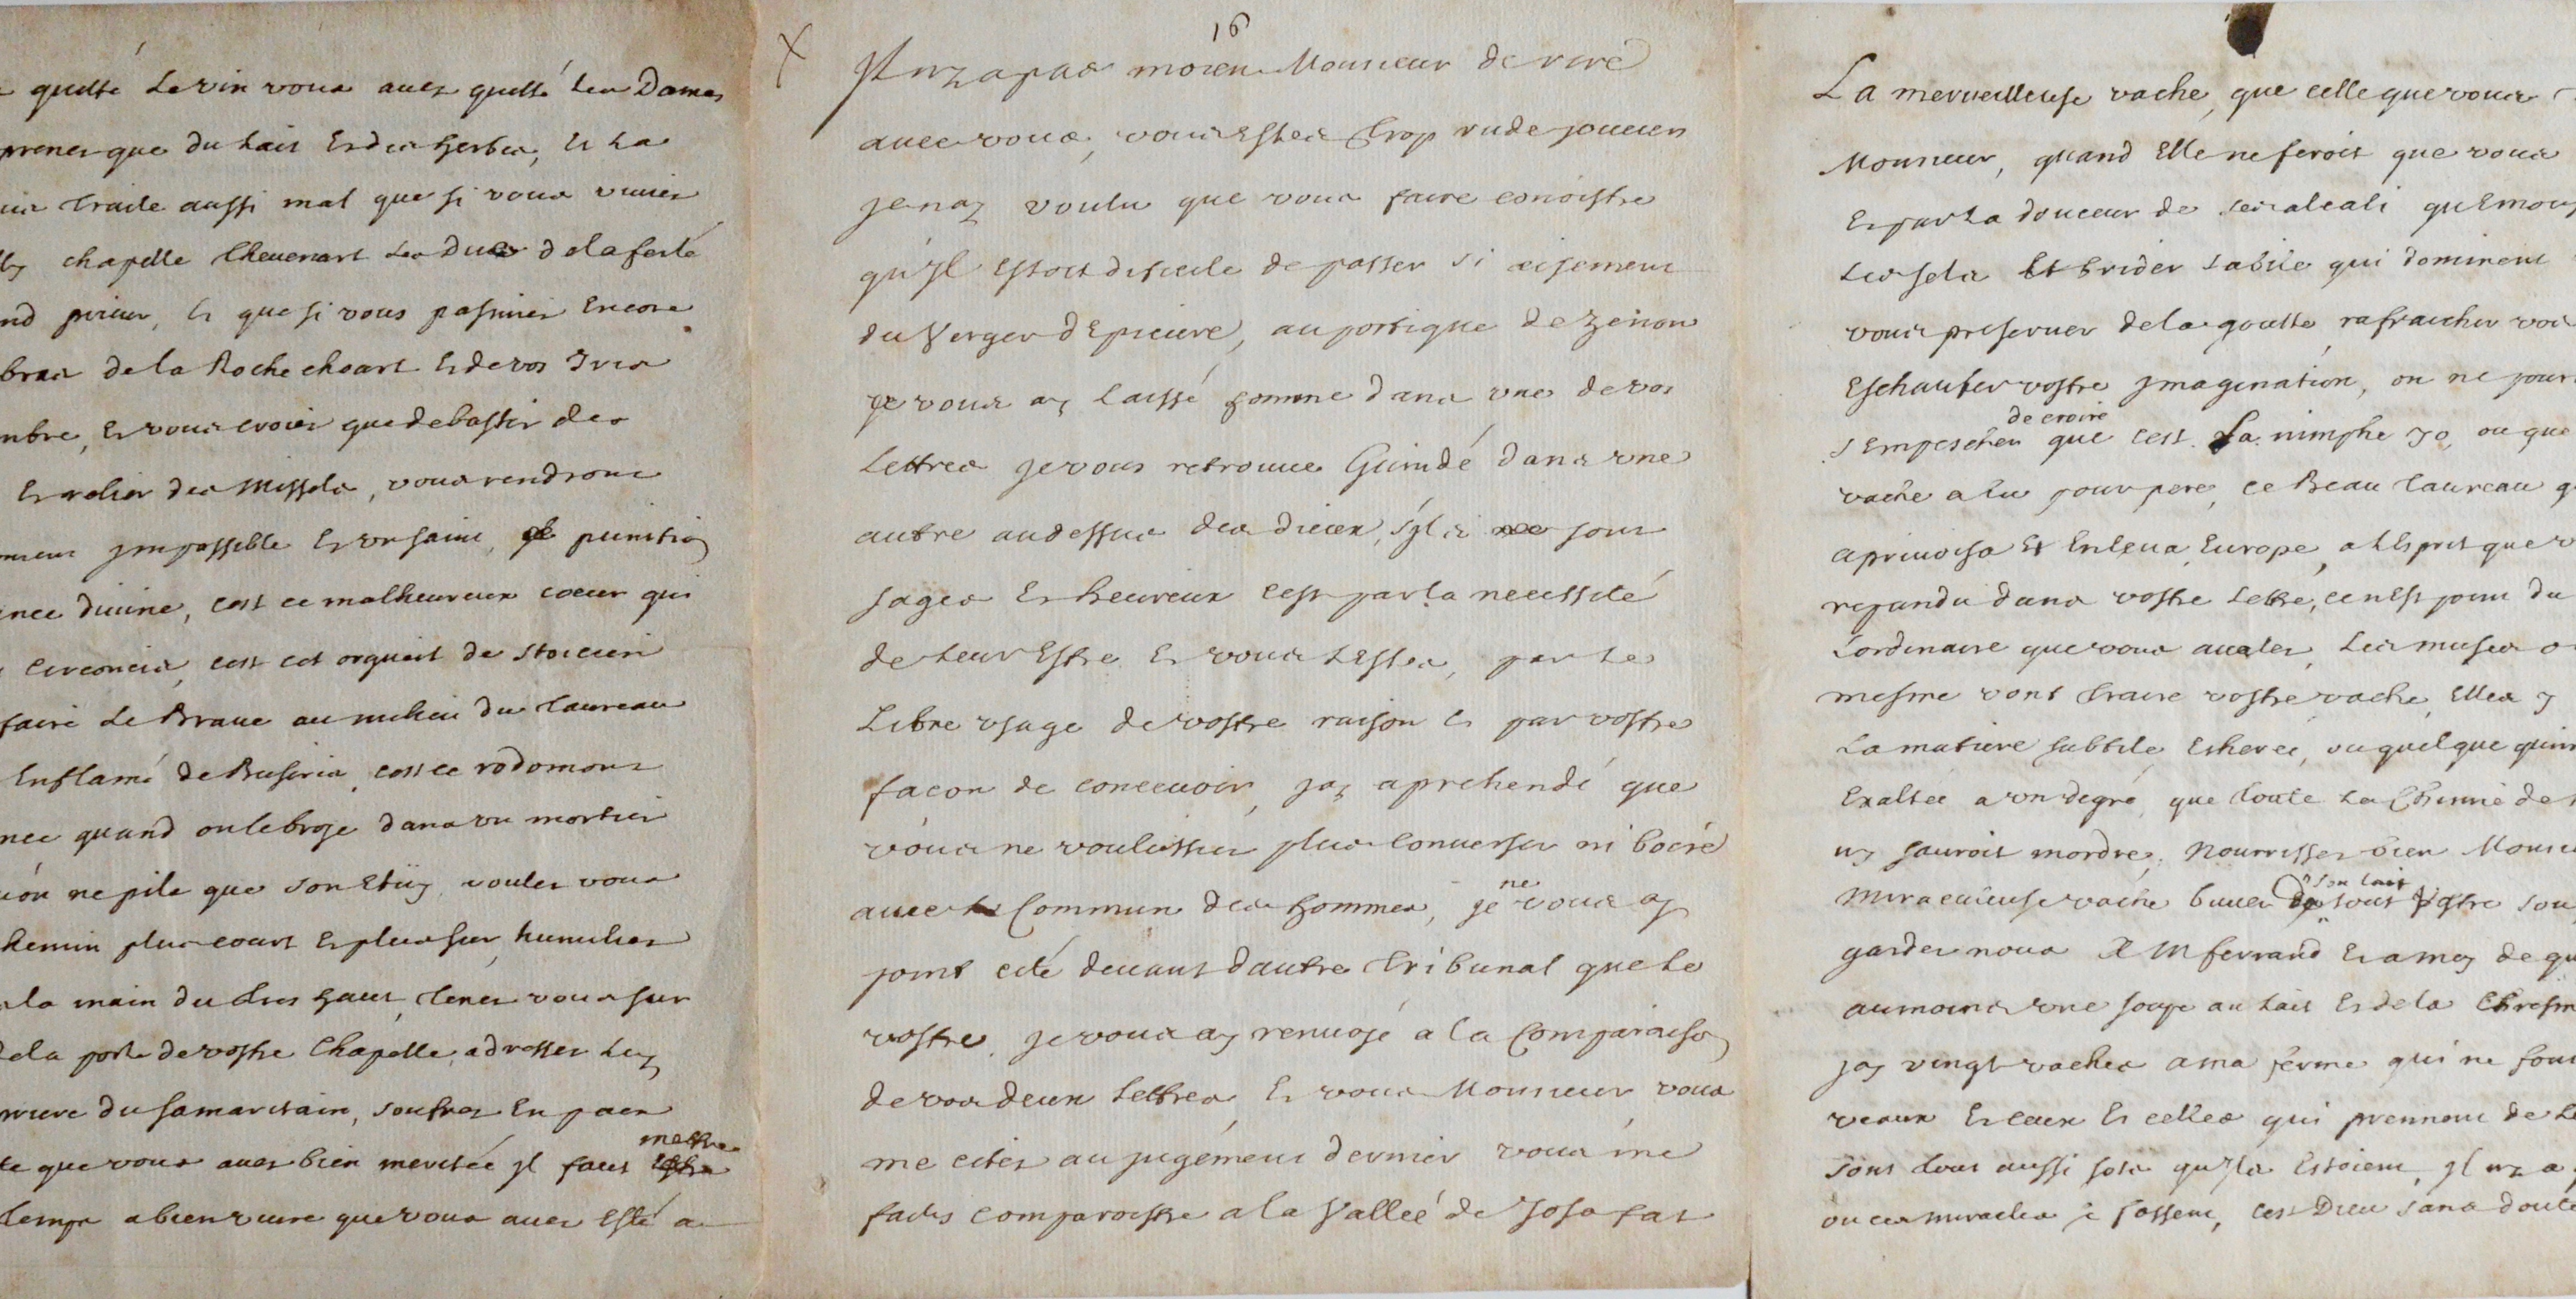 quitté le vin vous aues quitté les Dames
prenes que du Lait Et des herbes, Et La
traite aussi mal que si vous viuies
chapelle Cheuenart Les Ducs de la ferté
prieur, Et que si vous passiuies Encore
bras de la Rochechoart Et de vos Iris
Et vous croies que de bastir des
Et relier des Missels, vous rendront
impossible Et vn saint, punition
diuine, cest ce malheureux coeur qui
Circoncis, cest cet orgueil de stoicien
faire Le Braue au milieu du taureau
Enflamé de Busiris, cest ce rodomont
quand on le broye dans vn mortier
on ne pile que son Etuy, voules vous
chemin plus court Et plus sur, humilies
la main du tres haut, tenes vous sur
de la porte de vostre Chapelle, adresses Luy
du samaritain, soufres En paix
que vous aues bien meritée jl faut mettre
temps a bien viure que vous aues Esté a
16
Jl ny a pas moien Monsieur de rire
auec vous, vous Estes trop rude joueur
je nay voulu que vous faire conoistre
qu'jl Estoit dificile de passer si aisement
du Verger d'Epicure, au portique de Zenon
je vous ay laissé homme dans vne de vos
Lettres je vous retrouue Guindé dans vne
autre au dessus des dieux, s'jls sont
sages Et heureux cest par la necessité
de Leur Estre Et vous LEstes, par Le
Libre vsage de vostre raison Et par vostre
facon de conceuoir, jay aprehendé que
vous ne voulussies plus conuerser ni boire
auec le Commun des hommes, je ne vous ay
point cité deuant d'autre tribunal que Le
vostre, je vous ay renuoyé a la Comparaison
de vos deux Lettres, Et vous Monsieur vous
me cites au jugement dernier vous me
faites comparoistre a la Vallée de Josafat
La merueilleuse vache, que celle que vous
Monsieur, quand Elle ne feroit que vous
Et par La douceur de ses alcali
Les sels Et brider La bile qui dominent
vous preseruer de la goutte, rafraichir vos
Eschaufer vostre jmagination, on ne
s'Empescher de croire que cest La nimphe Jo, ou que
vache a Eu pour pere, ce Beau taureau
apriuoisa Et Enleua Europe, a l'Esprit que
repandu dans vostre Lettre, ce nEst point du
L'ordinaire que vous aualés, Les muses
mesme vont traire vostre vache, Elles y
La matiere subtile, Etherée, ou quelque
Exaltée a vn degré, que toute La Chimie de
ny sauroit mordre, Nourrisses bien
miraculeuse vache buuez son lait
gardes nous A M ferrand Et a moy de
au moins vne soupe au lait Et de la
jay vingt vaches a ma ferme qui ne font
veaux Et ceux Et celles qui prennent de
sont tous aussi sots qu'jls Estoient, jl ny a
ou ces miracles se fassent, cest Dieu sans doute